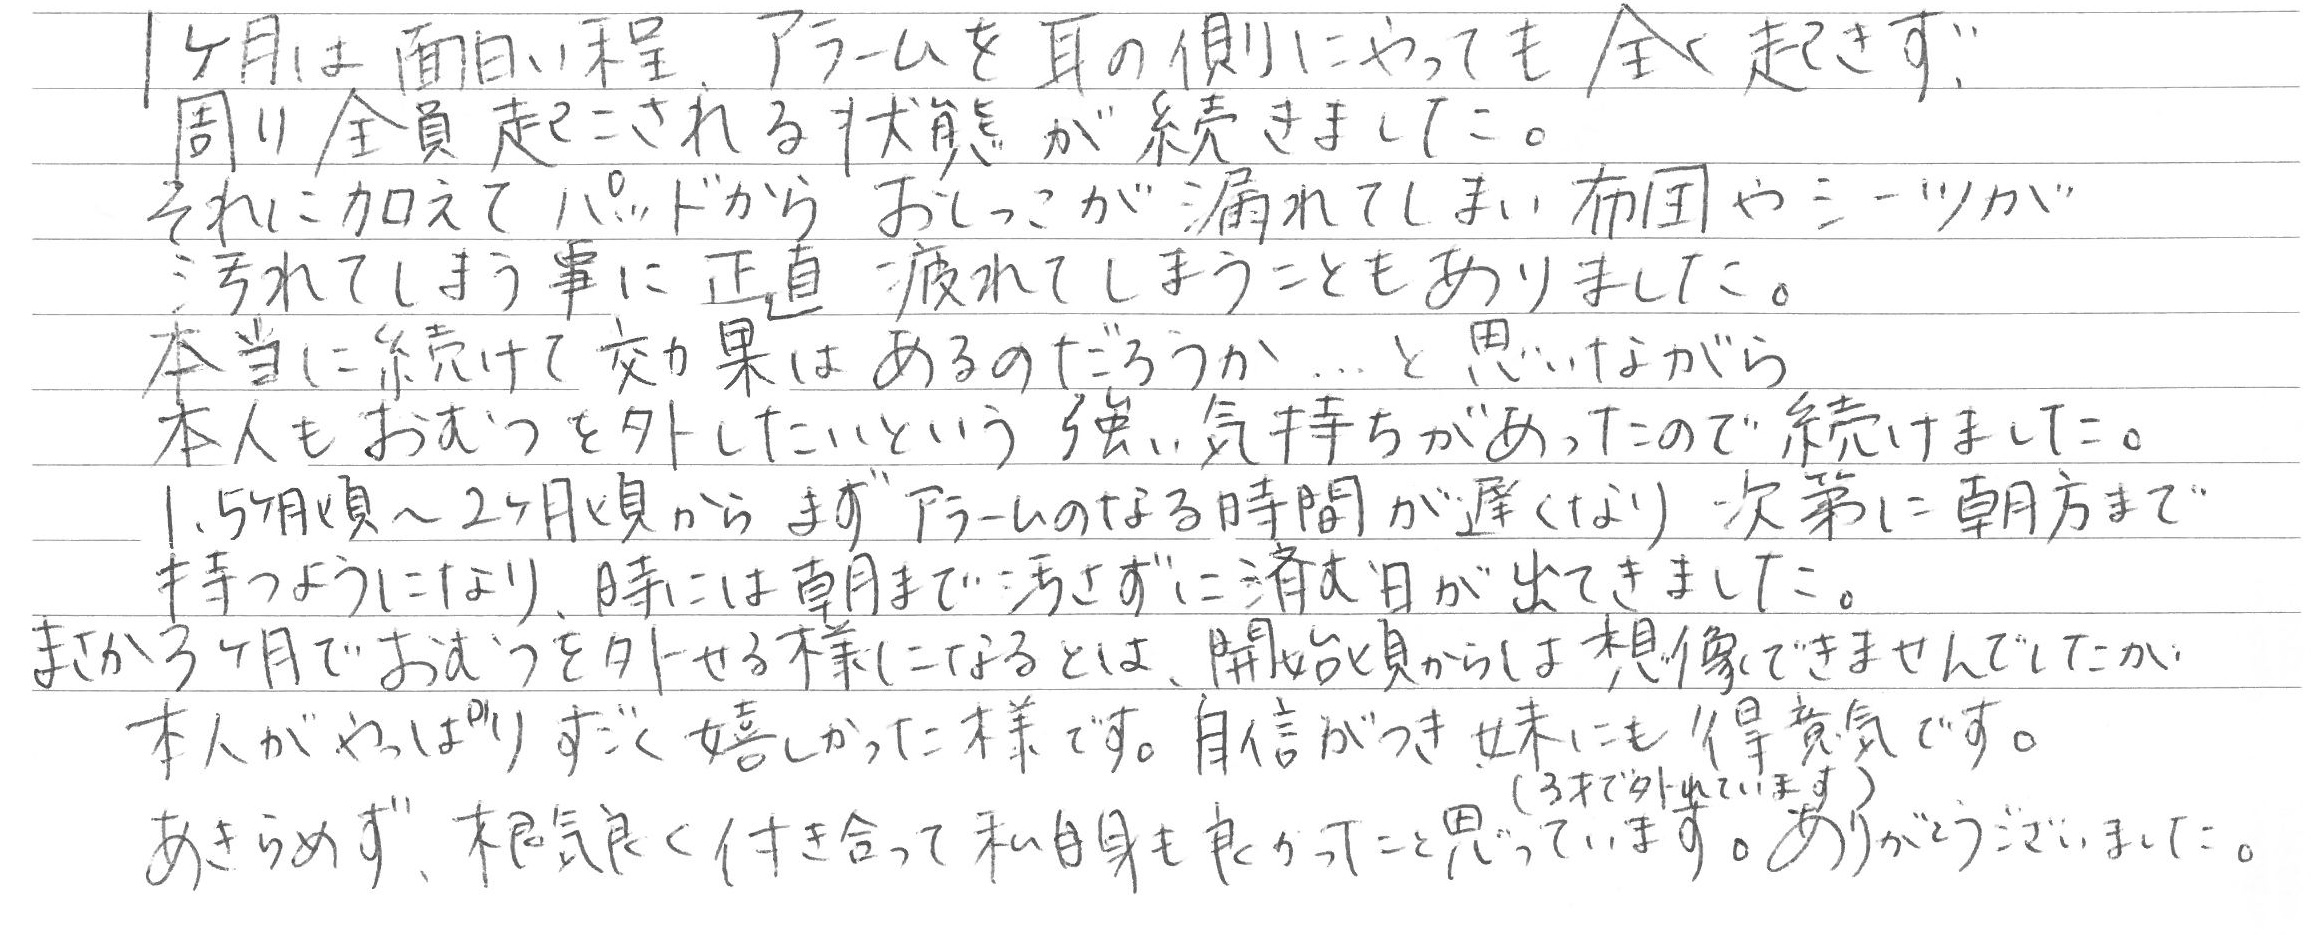 1ヶ月は面白い程、アラームを耳の側にやっても全く起きず、
周り全員起こされる状態が続きました。
それに加えてパッドからおしっこが漏れてしまい布団やシーツが
汚れてしまう事に正直疲れてしまうこともありました。
本当に続けて効果はあるのだろうか…と思いながら
本人もおむつを外したいという強い気持ちがあったので続けました。
1.5ヶ月頃～2ヶ月頃からまずアラームのなる時間が遅くなり次第に朝方まで
持つようになり、時には朝まで汚さずに済む日が出てきました。
まさか3ヶ月でおむつを外せる様になるとは、開始頃からは想像できませんでしたが
本人がやっぱりすごく嬉しかった様です。自信がつき妹にも得意気です。
(3才で外れています)
あきらめず、根気良く付き合って私自身も良かったと思っています。ありがとうございました。